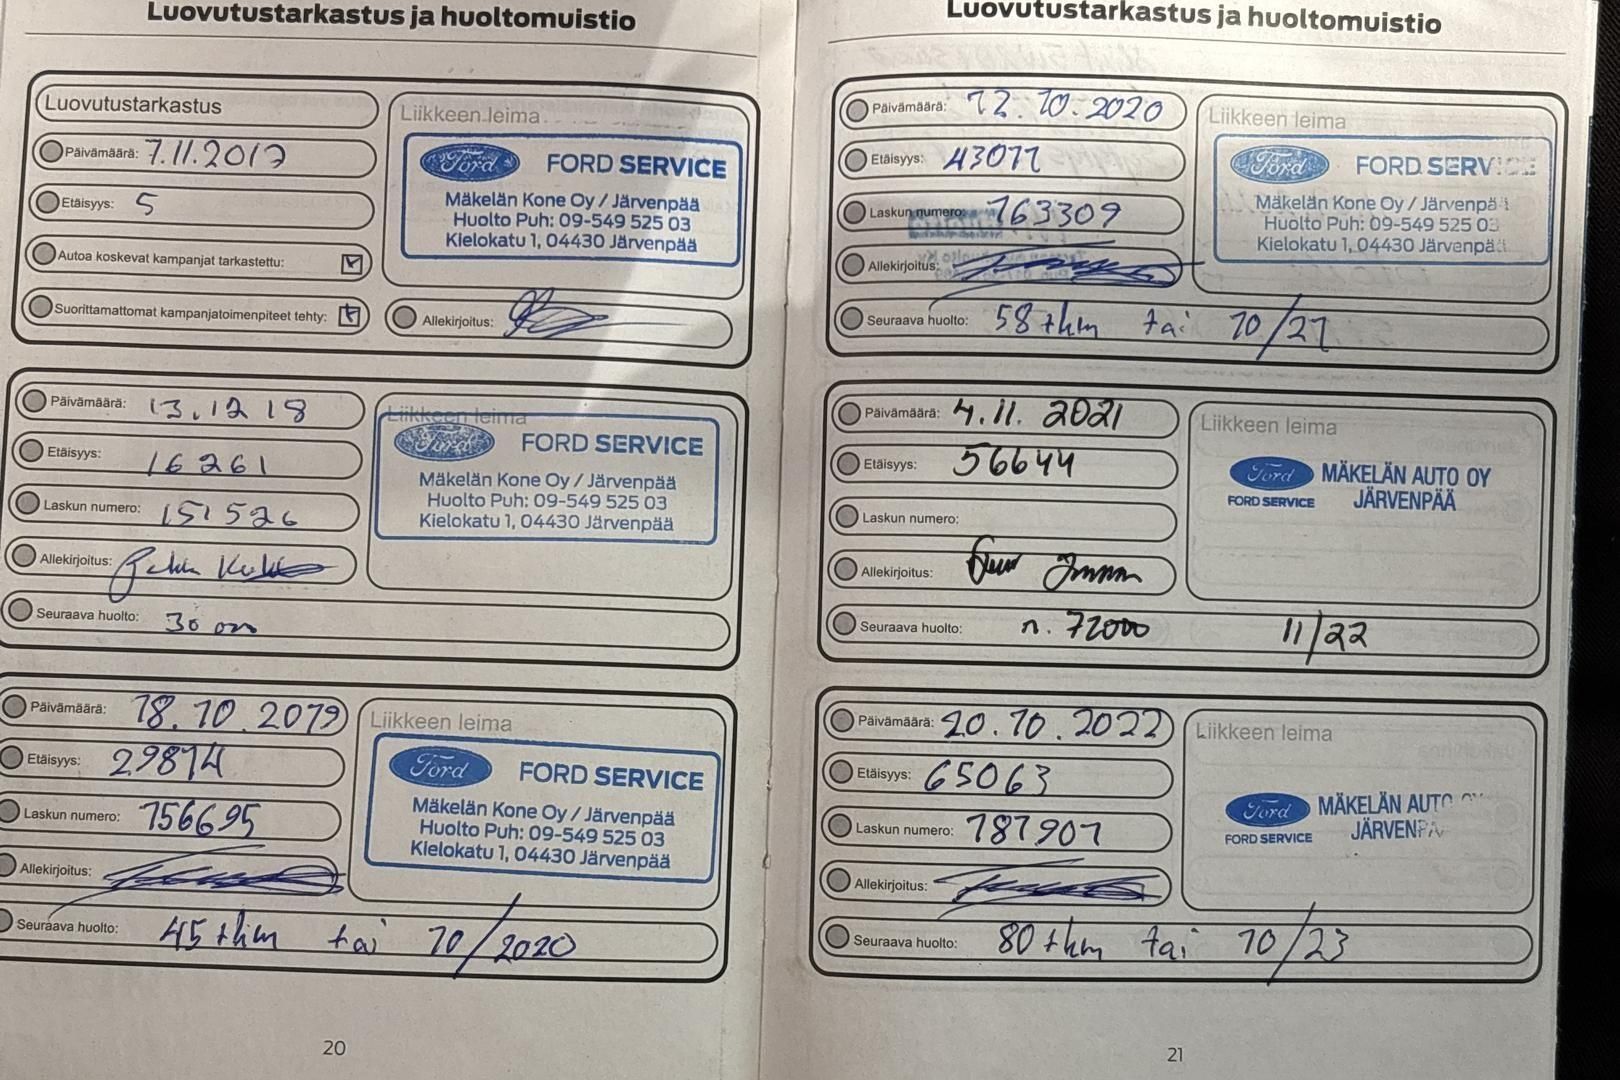 Luovutustarkastus ja huoltomuistio
Luovutustarkastus
Päivämäärä: 7.11.2017
Etäisyys: 5
Autoa koskevat kampanjat tarkastettu:
Suorittamattomat kampanjatoimenpiteet tehty:
Liikkeen leima
Ford FORD SERVICE
Mäkelän Kone Oy / Järvenpää
Huolto Puh: 09-549 525 03
Kielokatu 1, 04430 Järvenpää
Allekirjoitus:
Päivämäärä: 13.12 18
Etäisyys: 16 261
Laskun numero: 151526
Allekirjoitus:
Seuraava huolto: 30 000
Liikkeen leima
Ford FORD SERVICE
Mäkelän Kone Oy / Järvenpää
Huolto Puh: 09-549 525 03
Kielokatu 1, 04430 Järvenpää
Päivämäärä: 18.10.2019
Etäisyys: 29814
Laskun numero: 156695
Allekirjoitus:
Seuraava huolto: 45 tkm tai 10/2020
Liikkeen leima
Ford FORD SERVICE
Mäkelän Kone Oy / Järvenpää
Huolto Puh: 09-549 525 03
Kielokatu 1, 04430 Järvenpää
20
Luovutustarkastus ja huoltomuistio
Päivämäärä: 12.10.2020
Etäisyys: 43011
Laskun numero: 163309
Allekirjoitus:
Seuraava huolto: 58 tkm tai 10/21
Liikkeen leima
Ford FORD SERVICE
Mäkelän Kone Oy / Järvenpää
Huolto Puh: 09-549 525 03
Kielokatu 1, 04430 Järvenpää
Päivämäärä: 4.11. 2021
Etäisyys: 56644
Laskun numero:
Allekirjoitus:
Seuraava huolto: n. 72000 11/22
Liikkeen leima
Ford MÄKELÄN AUTO OY
FORD SERVICE JÄRVENPÄÄ
Päivämäärä: 20.10.2022
Etäisyys: 65063
Laskun numero: 181901
Allekirjoitus:
Seuraava huolto: 80 tkm tai 10/23
Liikkeen leima
Ford MÄKELÄN AUTO OY
FORD SERVICE JÄRVENPÄÄ
21